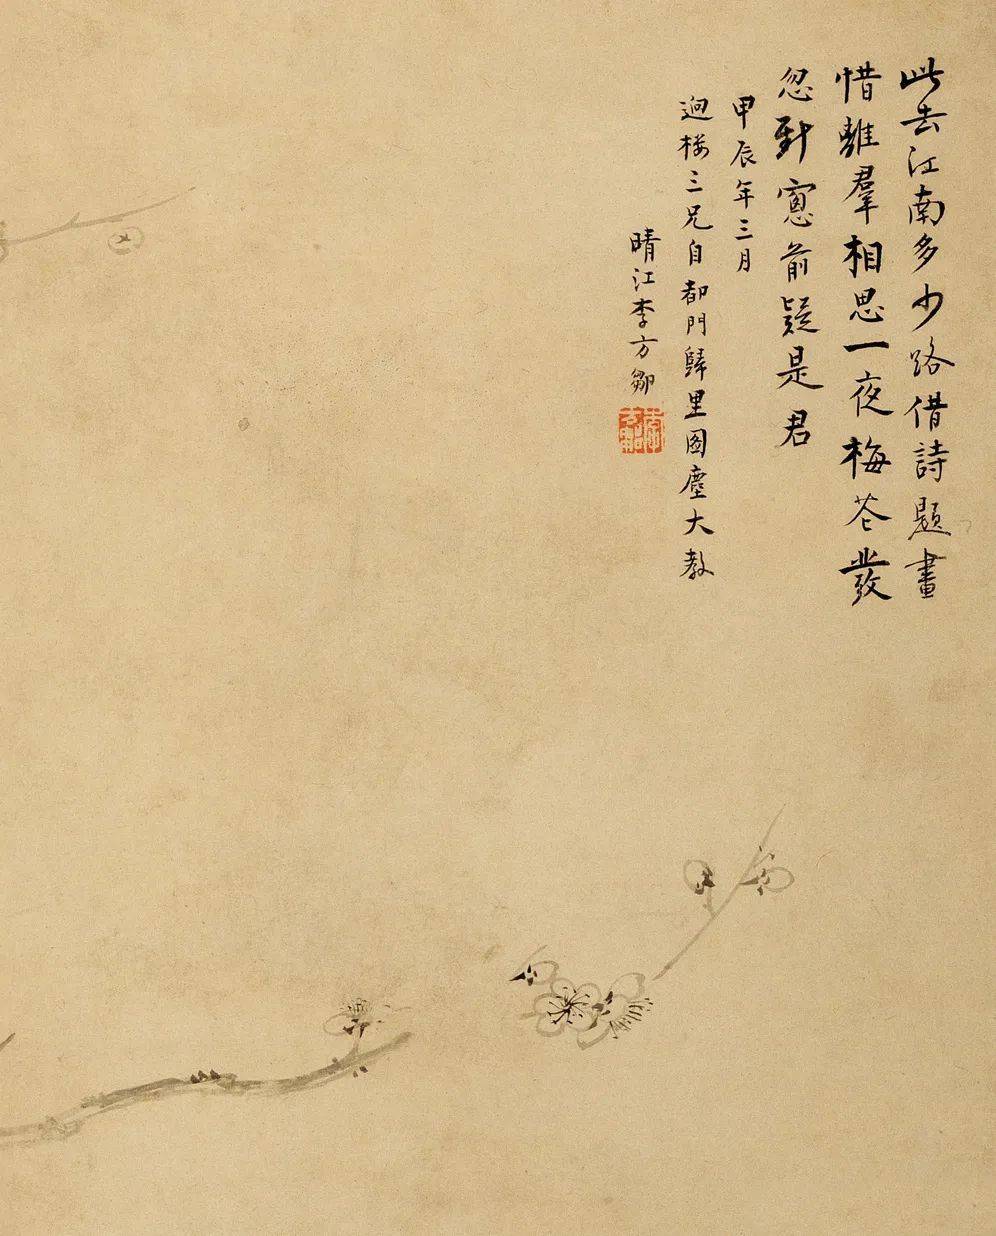 此去江南多少路借詩題畫
惜離羣相思一夜梅花發
忽對窻前疑是君
甲辰年三月
三兄自都門歸里圖塵大教
晴江李方鄒